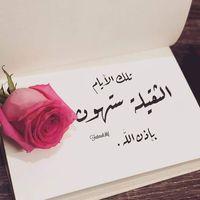 تلك الأيام
الثقيلة ستهون
بإذن الله.